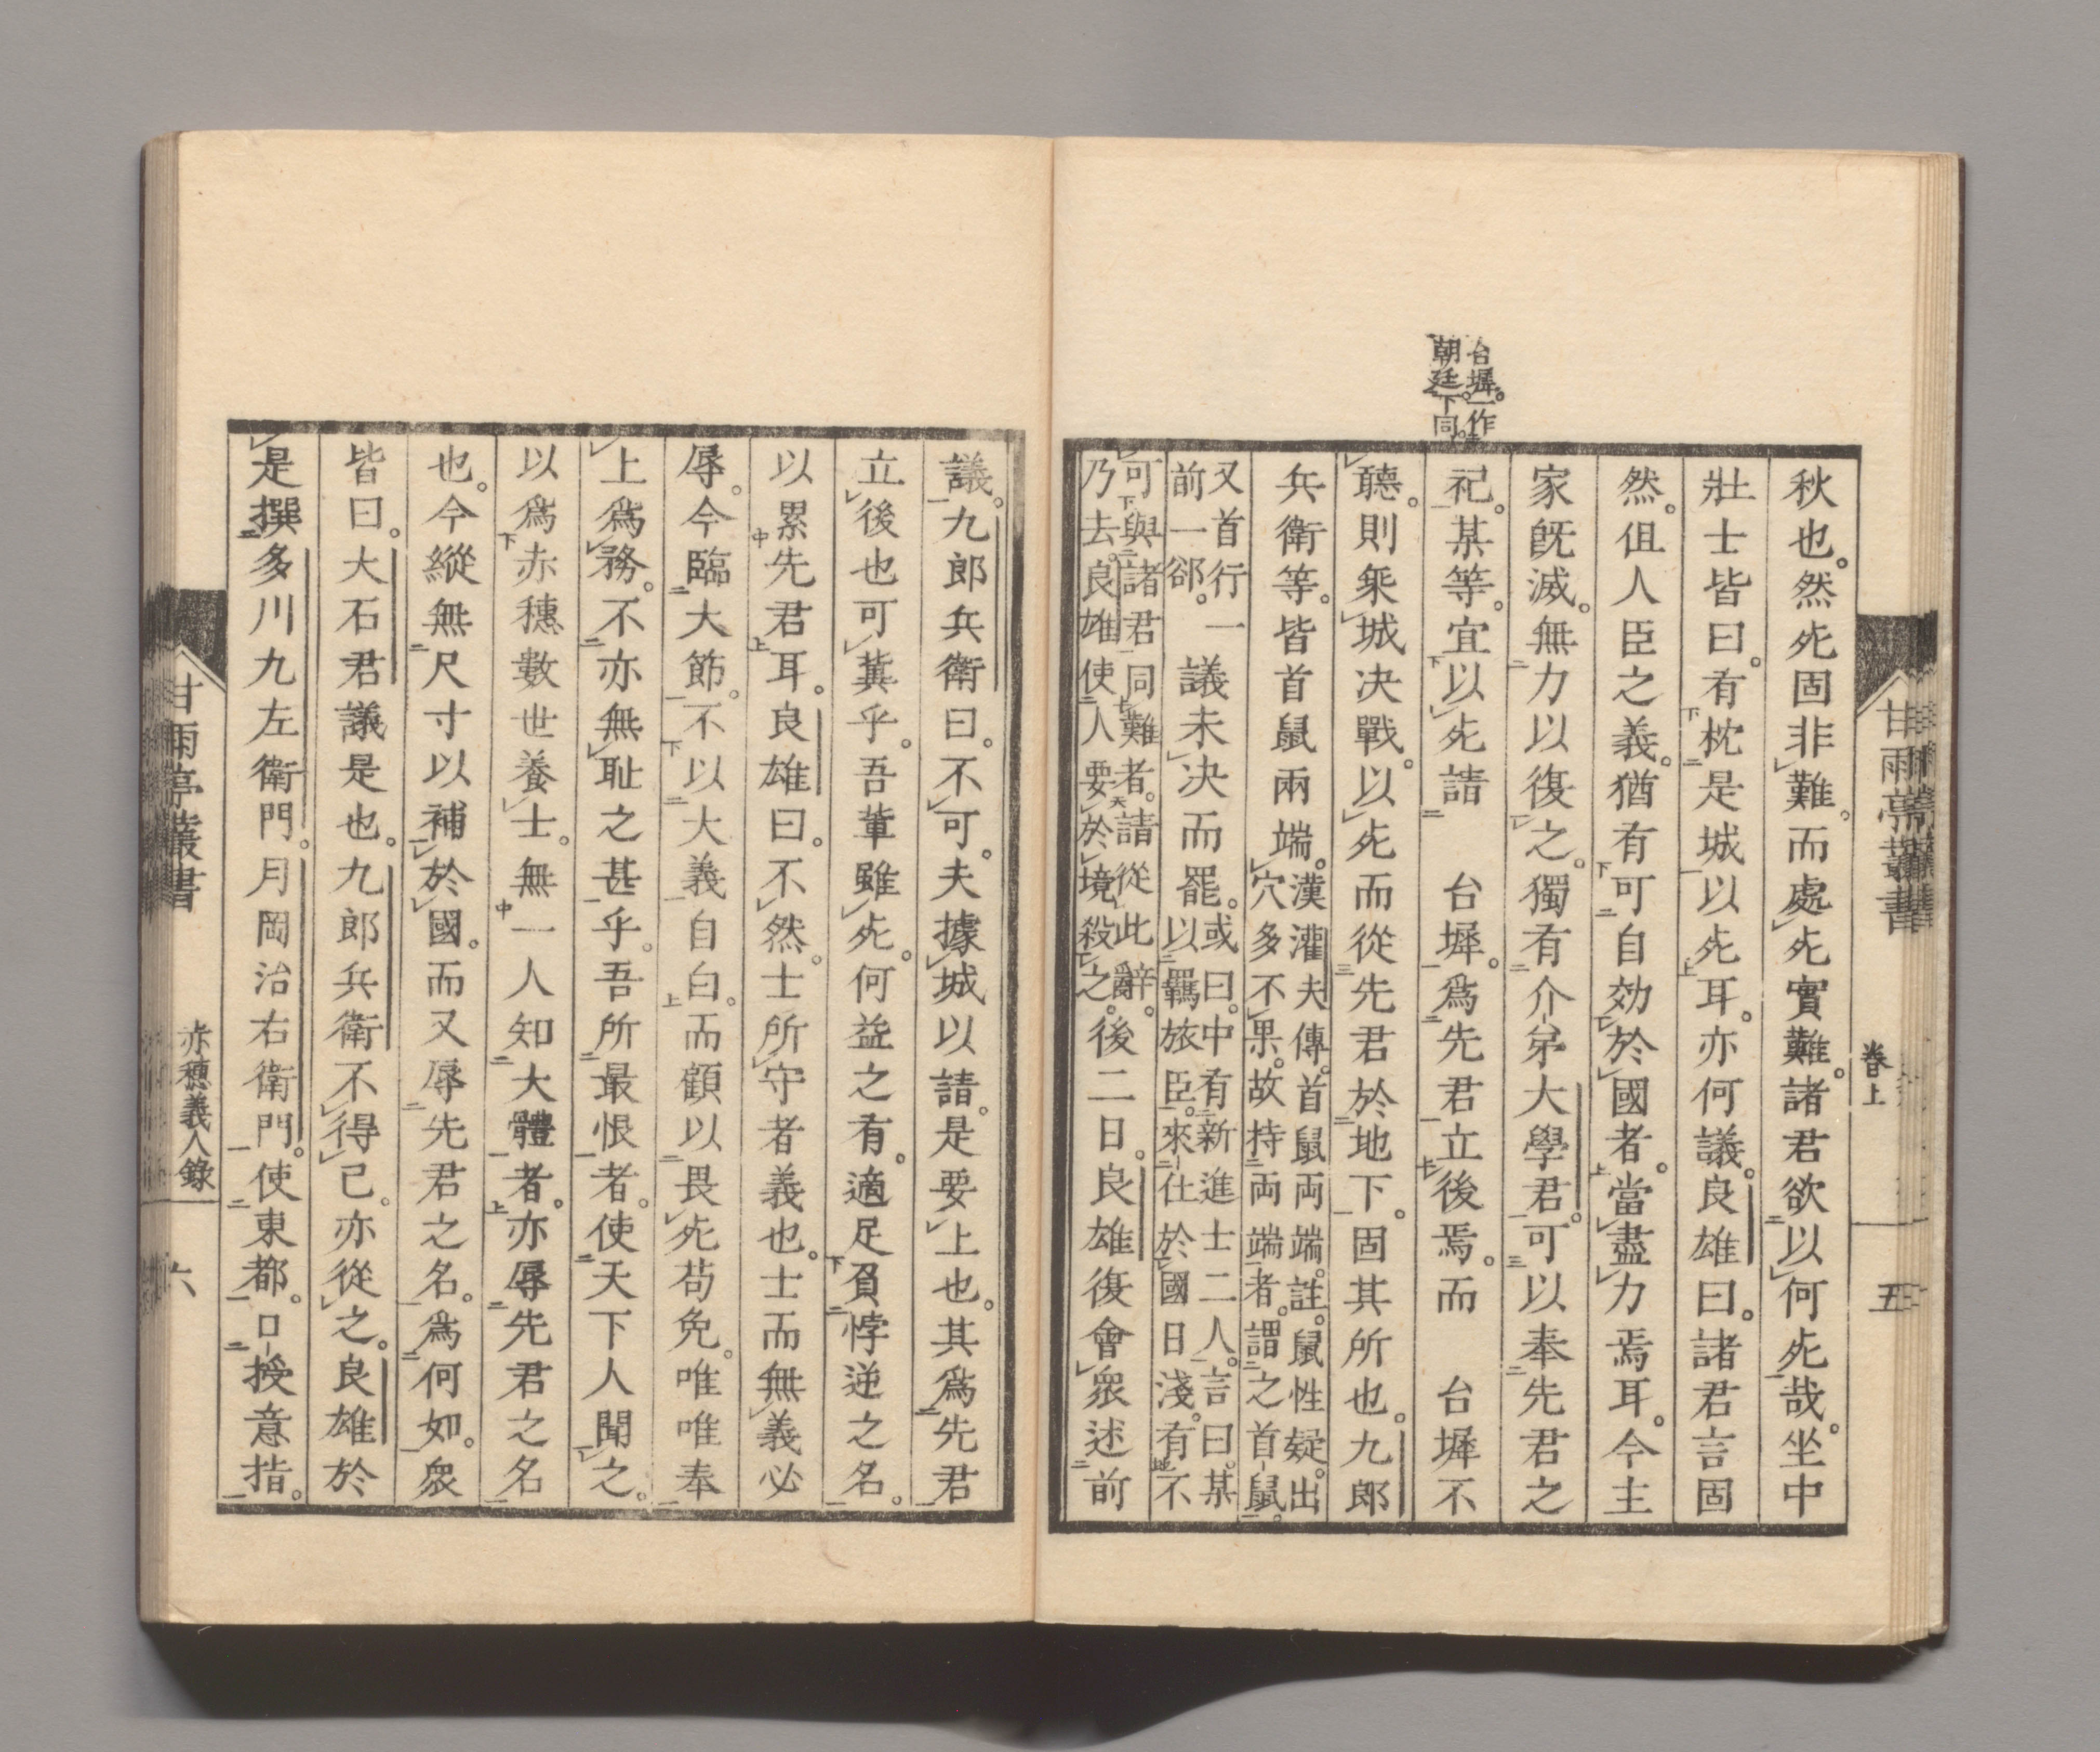 甘雨亭叢書
卷上
五
台墀。一作
朝廷。下同。
秋也。然死固非難。而處死實難。諸君欲以何死哉。坐中
壯士皆曰。有枕是城以死耳。亦何議。良雄曰。諸君言固
然。但人臣之義。猶有可自効於國者。當盡力焉耳。今主
家旣滅。無力以復之。獨有介弟大學君。可以奉先君之
祀。某等。宜以死請　台墀。爲先君立後焉。而　台墀不
聽。則乘城决戰。以死而從先君於地下。固其所也。九郎
兵衛等。皆首鼠兩端。
漢灌夫傳。首鼠両端。註。鼠性疑。出
穴多不果。故持両端者。謂之首鼠。
又首行一
前一郤。
議未决而罷。
或曰。中有新進士二人。言曰。某
以羈旅臣。來仕於國日淺。有不
可與諸君同難者。請從此辭。
乃去。良雄使人要於境殺之。
後二日。良雄復會衆述前
議。九郎兵衛曰。不可。夫據城以請。是要上也。其爲先君
立後也可冀乎。吾輩雖死。何益之有。適足負悖逆之名。
以累先君耳。良雄曰。不然。士所守者義也。士而無義必
辱。今臨大節。不以大義自白。而顧以畏死苟免。唯唯奉
上爲務。不亦無耻之甚乎。吾所最恨者。使天下人聞之。
以爲赤穗數世養士。無一人知大體者。亦辱先君之名
也。今縱無尺寸以補於國。而又辱先君之名。爲何如。衆
皆曰。大石君議是也。九郎兵衛不得已。亦從之。良雄於
是撰多川九左衛門。月岡治右衛門。使東都。口授意指。
甘雨亭叢書
赤穗義人錄
六